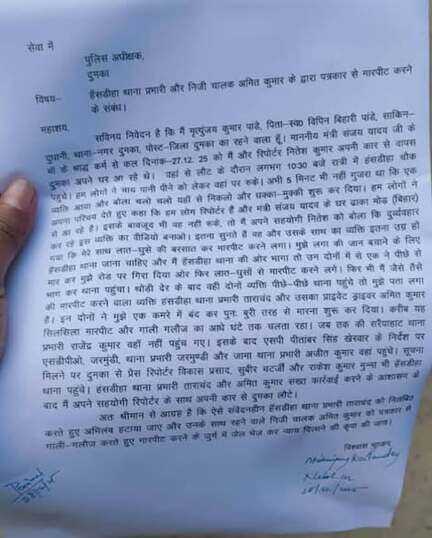 सेवा में
पुलिस अधीक्षक,
दुमका
विषय– हंसडीहा थाना प्रभारी और निजी चालक अमित कुमार के द्वारा पत्रकार से मारपीट करने
के संबंध।
महाशय,
सविनय निवेदन है कि मैं मृत्युंजय कुमार पांडे, पिता–स्व0 विपिन बिहारी पांडे, साकिन–
दुधानी, थाना–नगर दुमका, पोस्ट–जिला दुमका का रहने वाला हूँ। माननीय मंत्री संजय यादव जी के
माँ के श्राद्ध कर्म से कल दिनांक–27.12. 25 को मैं और रिपोर्टर नितेश कुमार अपनी कार से वापस
दुमका अपने घर आ रहे थे। वहां से लौट के दौरान लगभग 10:30 बजे रात्री में हंसडीहा चौक
पहुंचे। हम लोगों ने चाय पानी पीने को लेकर वहां पर रुके। अभी 5 मिनट भी नहीं गुजरा था कि एक
व्यक्ति आया और बोला चलो यहाँ से निकलो और धक्का–मुक्की शुरू कर दिया। हम लोगों ने
अपना परिचय देते हुए कहा कि हम लोग रिपोर्टर है और मंत्री संजय यादव के घर ढाका मोड (बिहार)
से आ रहे है। इसके बावजूद भी वह नही रुके, तो मैं अपने सहयोगी नितेश को बोला कि दुर्व्यवहार
कर रहे इस व्यक्ति का वीडियो बनाओ। इतना सुनते है वह और उसके साथ का व्यक्ति इतना उग्र हो
गया कि मेरे साथ लात–घुसे की बरसात कर मारपीट करने लगा। मुझे लगा की जान बचाने के लिए
हंसडीहा थाना जाना चाहिए और मैं हंसडीहा थाना की ओर भागा तो उन दोनों में से एक ने पीछे से
मार कर मुझे रोड पर गिरा दिया ओर फिर लात–घुसों से मारपीट करने लगे। फिर भी मैं जैसे तैसे
भाग कर थाना पहुंचा। थोड़ी देर के बाद वही दोनों व्यक्ति पीछे–पीछे थाना पहुंचे तो मुझे पता लगा
की मारपीट करने वाला व्यक्ति हंसडीहा थाना प्रभारी ताराचंद और उसका प्राइवेट ड्राइवर अमित कुमार
है। इन दोनों ने मुझे एक कमरे में बंद कर पुनः बुरी तरह से मारना शुरू कर दिया। करीब यह
सिलसिला मारपीट और गाली गलौज का आधे घंटे तक चलता रहा। जब तक की सरैयाहाट थाना
प्रभारी राजेंद्र कुमार वहाँ नहीं पहुंच गए। इसके बाद एसपी पीतांबर सिंह खेरवार के निर्देश पर
एसडीपीओ, जरमुंडी, थाना प्रभारी जरमुण्डी और जामा थाना प्रभारी अजीत कुमार वहां पहुंचे। सूचना
मिलने पर दुमका से प्रेस रिपोर्टर विकास प्रसाद, सुबीर चटर्जी और राकेश कुमार मुन्ना भी हंसडीहा
थाना पहुंचे। हंसडीहा थाना प्रभारी ताराचंद और अमित कुमार सख्त कार्रवाई करने के आशवासन के
बाद मैं अपने सहयोगी रिपोर्टर के साथ अपनी कार से दुमका लौटे।
अतः श्रीमान से आग्रह है कि ऐसे संवेदनहीन हंसडीहा थाना प्रभारी ताराचंद को निलंबित
करते हुए अभिलंब हटाया जाए और उनके साथ रहने वाले निजी चालक अमित कुमार को पत्रकार से
गाली–गलौज करते हुए मारपीट करने के जुर्म में जेल भेज कर न्याय दिलाने की कृपा की जाय।
विश्वास भाजन